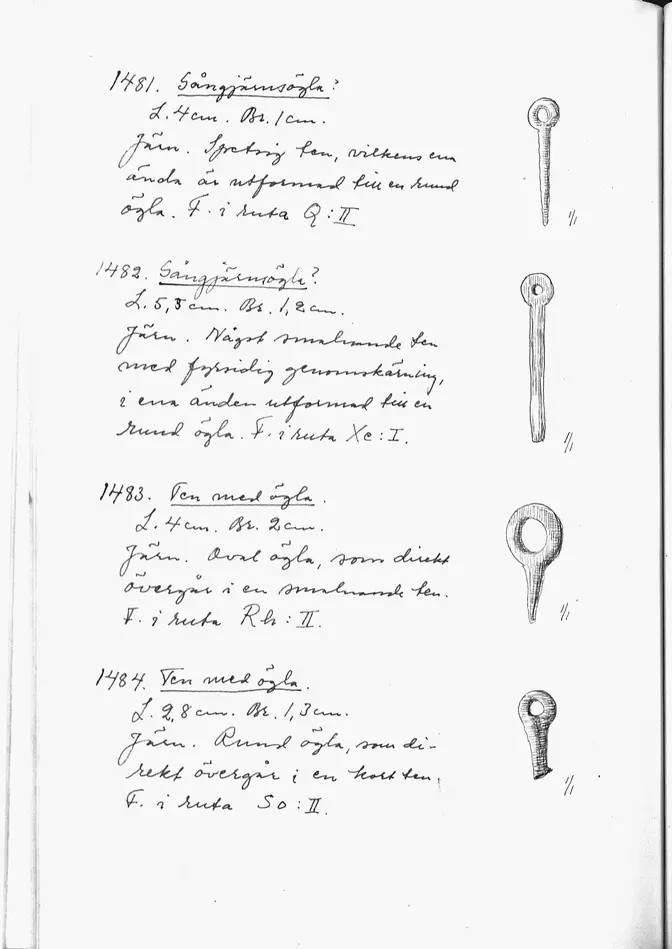 1481. Sångjärnsögla?
L. 4 cm. Br. 1 cm.
Järn. Spetsig ten, vilkens ena
ända är utformad till en rund
ögla. F. i ruta Q : II
1/1
1482. Sångjärnsögla?
L. 5,5 cm. Br. 1,2 cm.
Järn. Något smalnande ten
med fyrsidig genomskärning,
i ena änden utformad till en
rund ögla. F. i ruta Xc : I.
1/1
1483. Ten med ögla.
L. 4 cm. Br. 2 cm.
Järn. Oval ögla, som direkt
övergår i en smalnande ten.
F. i ruta Rh : II.
1/1
1484. Ten med ögla.
L. 2,8 cm. Br. 1,3 cm.
Järn. Rund ögla, som di-
rekt övergår i en kort ten.
F. i ruta So : II.
1/1